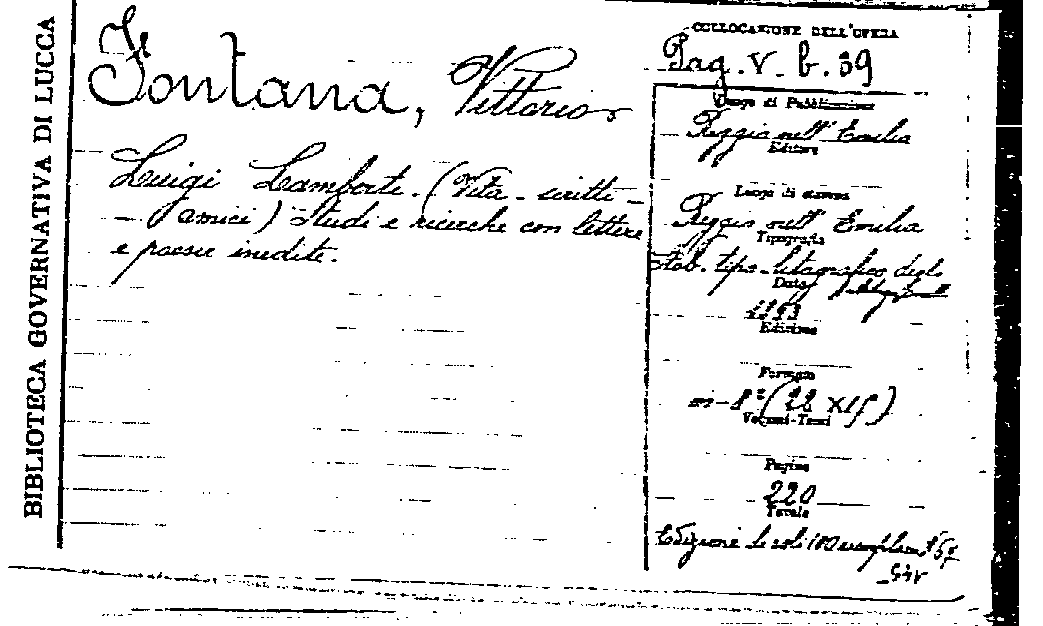 BIBLIOTECA GOVERNATIVA DI LUCCA
Fontana, Vittorio
Luigi Lamberti. (Vita - scritti -
- amici) Studi e ricerche con lettere
e poesie inedite.
COLLOCAZIONE DELL'OPERA
Pag. V. b. 39
Luogo di Pubblicazione
Reggio nell' Emilia
Editore
Luogo di stampa
Reggio nell' Emilia
Tipografia
Stab. tipo-litografico degli
Data
1893
Edizione
Formato
in-8° (22 x 15)
Volumi-Tomi
Pagine
220
Tavole
Edizione di soli 100 esemplari